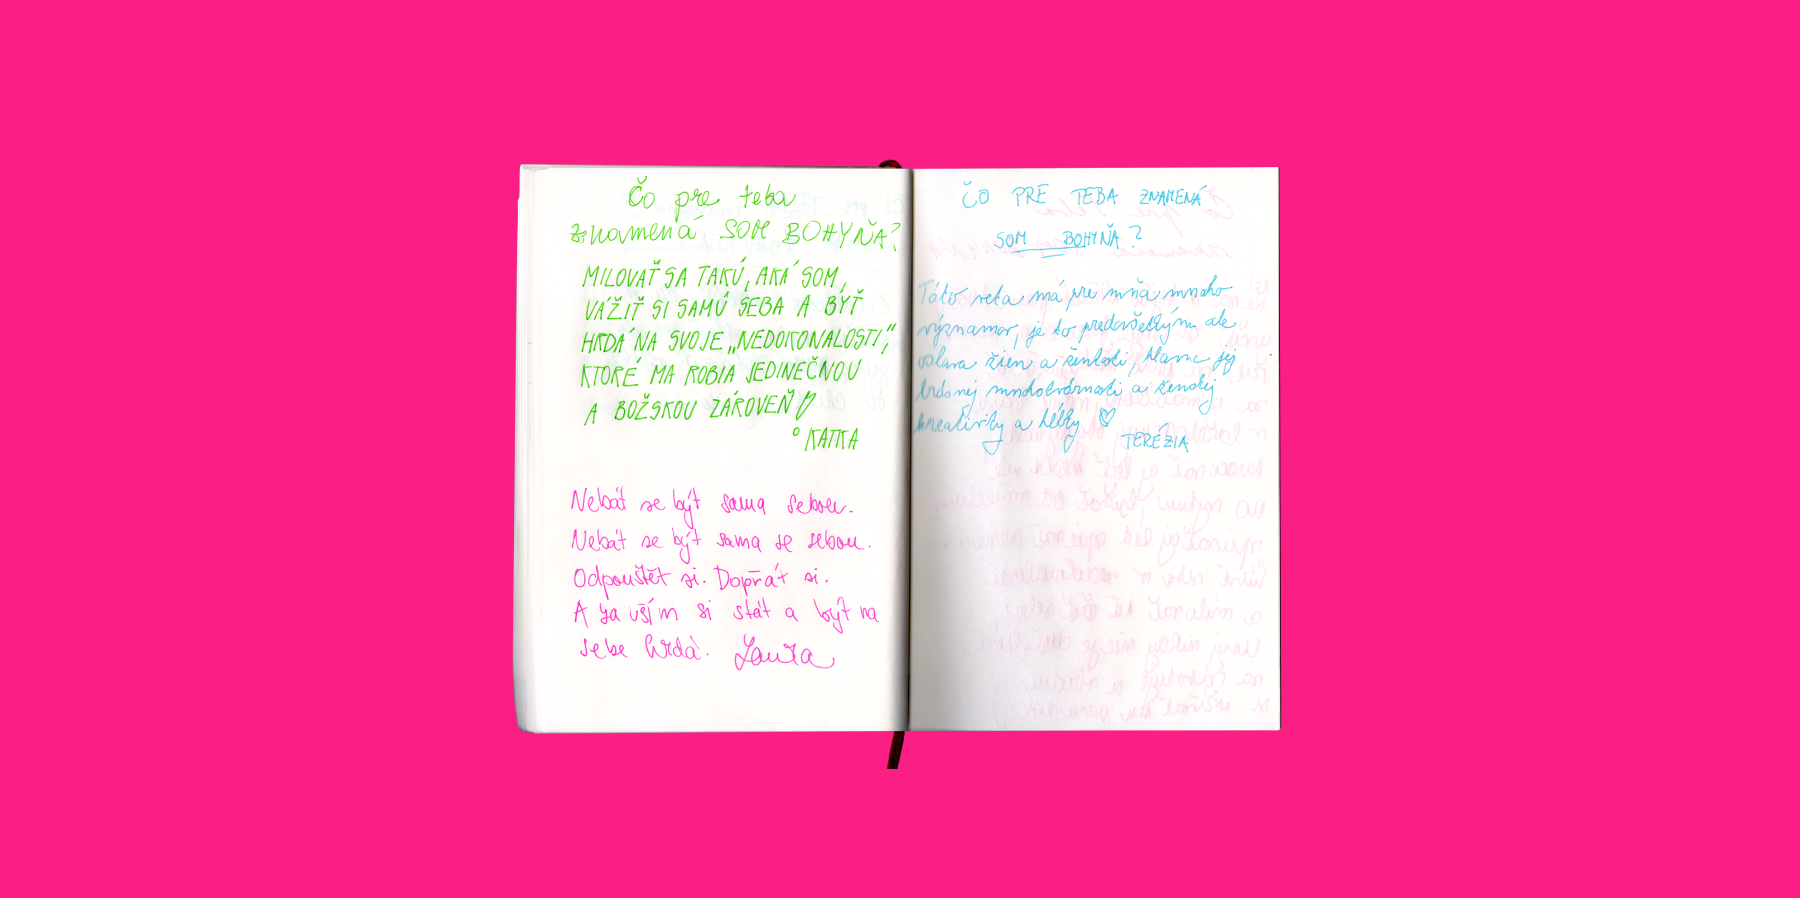 Čo pre teba
znamená SOM BOHYŇA?
MILOVAŤ SA TAKÚ, AKÁ SOM,
VÁŽIŤ SI SAMÚ SEBA A BYŤ
HRDÁ NA SVOJE „NEDOKONALOSTI,“
KTORÉ MA ROBIA JEDINEČNOU
A BOŽSKOU ZÁROVEŇ
KATKA
Nebát se být sama sebou.
Nebát se být sama se sebou.
Odpouštět si. Dopřát si.
A za vším si stát a být na
sebe hrdá. Laura
ČO PRE TEBA ZNAMENÁ
SOM BOHYŇA?
Táto veta má pre mňa mnoho
významov, je to predovšetkým ale
oslava žien a ženskosti, hlavne jej
krásnej mnohotvárnosti a ženskej
kreativity a hĺbky
TERÉZIA